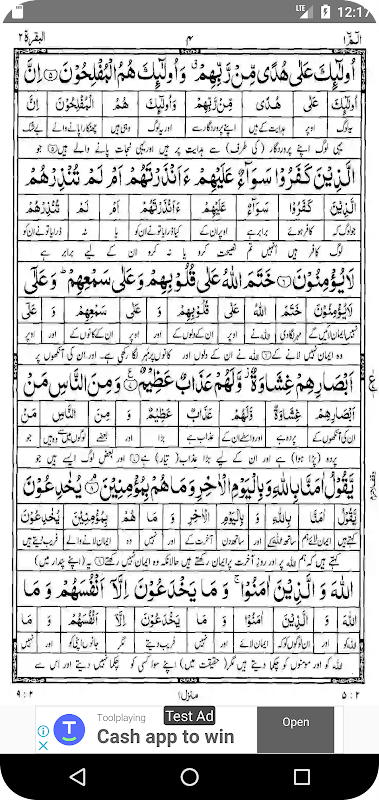 12:17
البقرة ٢
٤
الٓمّٓ ١
اُولٰٓئِكَ عَلٰى هُدًى مِّنْ رَّبِّهِمْ ۗ وَاُولٰٓئِكَ هُمُ الْمُفْلِحُوْنَ ﴿۵﴾ اِنَّ
اُولٰٓئِكَ عَلٰى هُدًى مِّنْ رَّبِّهِمْ وَاُولٰٓئِكَ هُمُ الْمُفْلِحُوْنَ اِنَّ
یہ لوگ اوپر ہدایت کے ہیں اپنے پروردگار سے اور یہ لوگ وہی ہیں چھٹکارا پانے والے بے شک
یہی لوگ اپنے پروردگار (کی طرف) سے ہدایت پر ہیں اور یہی نجات پانے والے ہیں ﴿۵﴾ جو
الَّذِيْنَ كَفَرُوْا سَوَآءٌ عَلَيْهِمْ ءَاَنْذَرْتَهُمْ اَمْ لَمْ تُنْذِرْهُمْ
الَّذِيْنَ كَفَرُوْا سَوَآءٌ عَلَيْهِمْ ءَاَنْذَرْتَهُمْ اَمْ لَمْ تُنْذِرْهُمْ
جو لوگ کہ کافر ہوئے برابر ہے اوپر ان کے کیا ڈرایا تو نے ان کو یا نہ ڈرایا تو نے ان کو
لوگ کافر ہیں انہیں تم نصیحت کرو یا نہ کرو ان کے لیے برابر ہے
لَا يُؤْمِنُوْنَ ﴿۶﴾ خَتَمَ اللّٰهُ عَلٰى قُلُوْبِهِمْ وَعَلٰى سَمْعِهِمْ ۗ وَعَلٰٓى
لَا يُؤْمِنُوْنَ خَتَمَ اللّٰهُ عَلٰى قُلُوْبِهِمْ وَ عَلٰى سَمْعِهِمْ وَ عَلٰٓى
نہیں ایمان لائیں گے مہر لگا دی اللہ نے اوپر ان کے دلوں کے اور اوپر ان کے کانوں کے اور اوپر
وہ ایمان نہیں لانے کے ﴿۶﴾ اللہ نے ان کے دلوں اور کانوں پر مہر لگا رکھی ہے۔ اور ان کی آنکھوں پر
اَبْصَارِهِمْ غِشَاوَةٌ ۡ وَّلَهُمْ عَذَابٌ عَظِيْمٌ ﴿۷﴾ وَمِنَ النَّاسِ مَنْ
اَبْصَارِهِمْ غِشَاوَةٌ وَّلَهُمْ عَذَابٌ عَظِيْمٌ وَ مِنَ النَّاسِ مَنْ
ان کی آنکھوں کے پردہ ہے اور واسطے ان کے عذاب ہے بڑا اور بعضے لوگوں میں سے وہ ہیں جو
پردہ (پڑا ہوا) ہے اور ان کے لیے بڑا عذاب (تیار) ہے ﴿۷﴾ اور بعض لوگ ایسے ہیں جو
يَّقُوْلُ اٰمَنَّا بِاللّٰهِ وَبِالْيَوْمِ الْاٰخِرِ وَمَا هُمْ بِمُؤْمِنِيْنَ ﴿۸﴾ يُخٰدِعُوْنَ
يَّقُوْلُ اٰمَنَّا بِاللّٰهِ وَ بِالْيَوْمِ الْاٰخِرِ وَ مَا هُمْ بِمُؤْمِنِيْنَ يُخٰدِعُوْنَ
کہتے ہیں ایمان لائے ہم ساتھ اللہ کے اور ساتھ دن آخرت کے اور نہیں وہ ایمان لانے والے فریب دیتے ہیں
کہتے ہیں کہ ہم اللہ پر اور روز آخرت پر ایمان رکھتے ہیں حالانکہ وہ ایمان نہیں رکھتے ﴿۸﴾ یہ (اپنے پندار میں)
اللّٰهَ وَ الَّذِيْنَ اٰمَنُوْا ۚ وَ مَا يَخْدَعُوْنَ اِلَّآ اَنْفُسَهُمْ وَ مَا
اللّٰهَ وَ الَّذِيْنَ اٰمَنُوْا وَ مَا يَخْدَعُوْنَ اِلَّآ اَنْفُسَهُمْ وَ مَا
اللہ کو اور ان لوگوں کو کہ ایمان لائے اور نہیں فریب دیتے مگر جانوں اپنی کو اور نہیں
اللہ کو اور مومنوں کو چکما دیتے ہیں مگر (حقیقت میں) اپنے سوا کسی کو چکما نہیں دیتے اور اس سے
٩ : ٢
منزل ١
٥ : ٢
Toolplaying
Test Ad
Cash app to win
Open